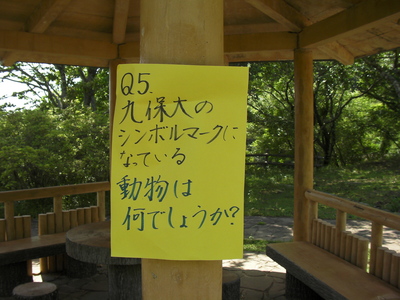 Q5.
九保大の
シンボルマークに
なっている
動物は
何でしょうか?